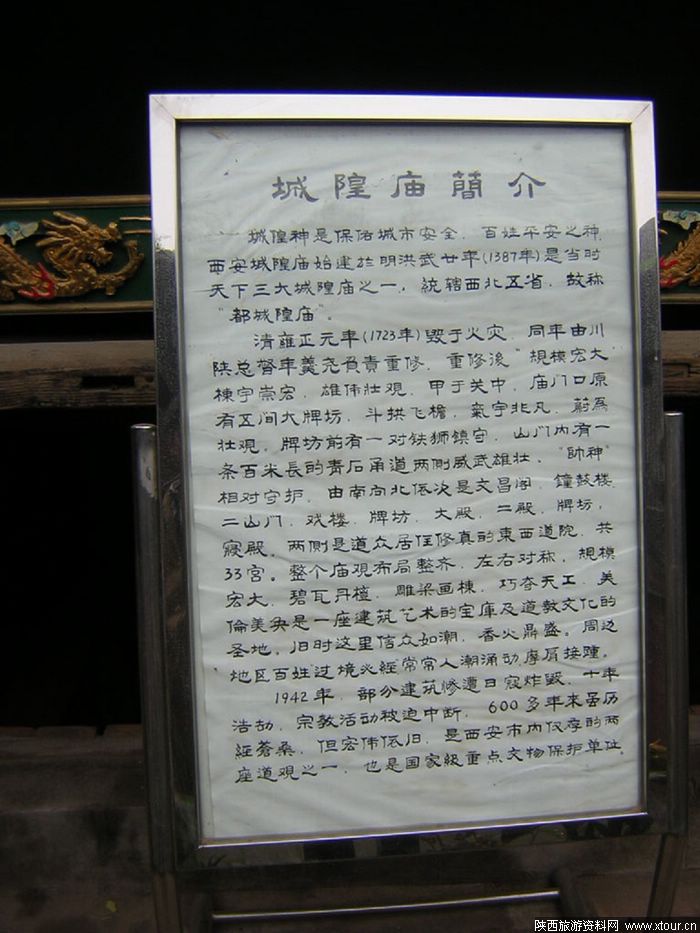 城隍庙簡介
城隍神是保佑城市安全、百姓平安之神,
西安城隍庙始建於明洪武廿年(1387年)是当时
天下三大城隍庙之一, 統辖西北五省, 故称
“都城隍庙”。
清雍正元年(1723年)毁于火灾, 同年由川
陕总督年羹尧負責重修, 重修後“規模宏大
棟宇崇宏, 雄伟壮观, 甲于关中, 庙门口原
有五间大牌坊, 斗拱飞檐, 氣宇非凡, 蔚為
壮观, 牌坊前有一对铁狮镇守, 山门内有一
条百米長的青石甬道两側威武雄壮, “帥神”
相对守护, 由南向北依次是文昌阁, 鐘鼓楼
二山门, 戏楼, 牌坊, 大殿, 二殿, 牌坊,
寝殿。两側是道众居住修真的東西道院, 共
33宫。整个庙观布局整齐, 左右对称, 規模
宏大, 碧瓦丹檀, 雕梁画棟, 巧夺天工, 美
倫美奂是一座建筑艺术的宝庫及道教文化的
圣地。旧时这里信众如潮, 香火鼎盛。周边
地区百姓过境必經常常人潮涌动摩肩接踵。
1942年, 部分建筑惨遭日寇炸毁, 十年
浩劫, 宗教活动被迫中断, 600多年来虽历
經蒼桑, 但宏伟依旧, 是西安市内仅存的两
座道观之一, 也是国家級重点文物保护单位。
陕西旅游资料网 www.xtour.cn